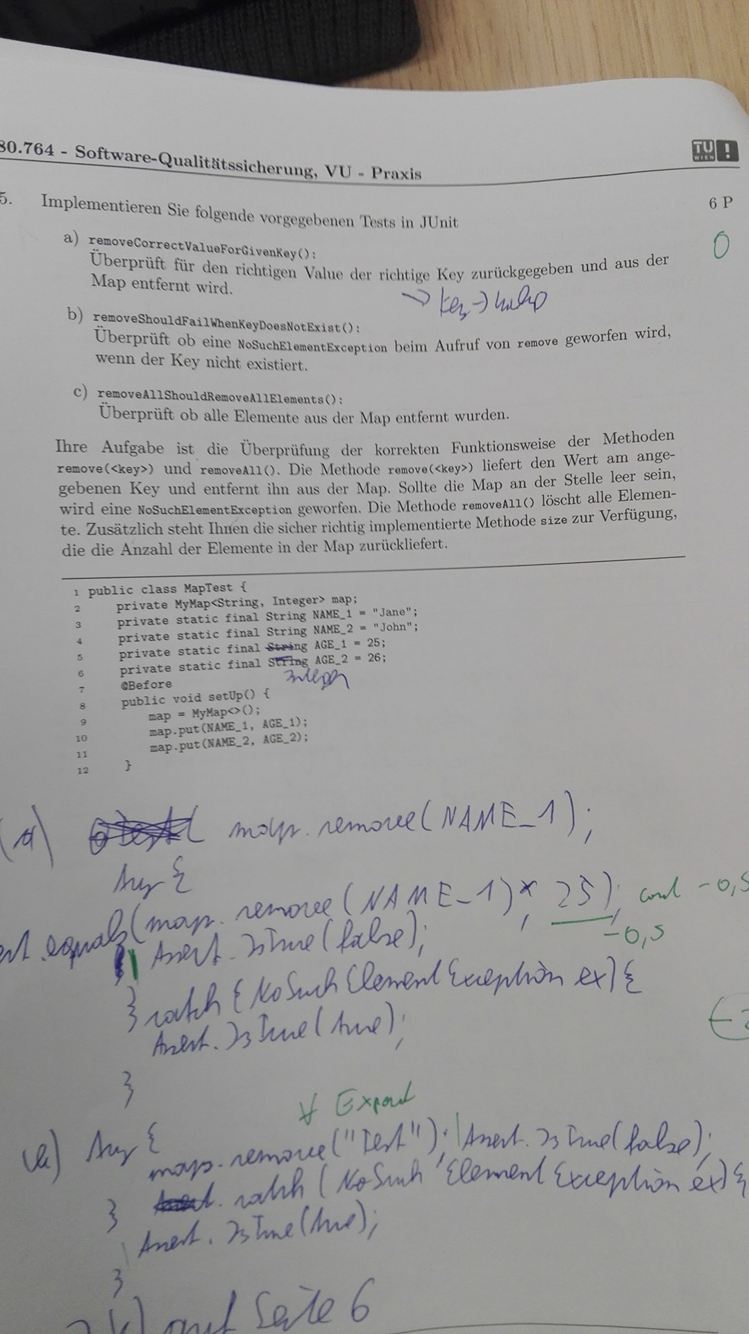 80.764 - Software-Qualitätssicherung, VU - Praxis
TU WIEN
5. Implementieren Sie folgende vorgegebenen Tests in JUnit 6 P
0
a) removeCorrectValueForGivenKey():
Überprüft für den richtigen Value der richtige Key zurückgegeben und aus der
Map entfernt wird.
→ key →
b) removeShouldFailWhenKeyDoesNotExist():
Überprüft ob eine NoSuchElementException beim Aufruf von remove geworfen wird,
wenn der Key nicht existiert.
c) removeAllShouldRemoveAllElements():
Überprüft ob alle Elemente aus der Map entfernt wurden.
Ihre Aufgabe ist die Überprüfung der korrekten Funktionsweise der Methoden
remove(<key>) und removeAll(). Die Methode remove(<key>) liefert den Wert am ange-
gebenen Key und entfernt ihn aus der Map. Sollte die Map an der Stelle leer sein,
wird eine NoSuchElementException geworfen. Die Methode removeAll() löscht alle Elemen-
te. Zusätzlich steht Ihnen die sicher richtig implementierte Methode size zur Verfügung,
die die Anzahl der Elemente in der Map zurückliefert.
1 public class MapTest {
2 private MyMap<String, Integer> map;
3 private static final String NAME_1 = "Jane";
4 private static final String NAME_2 = "John";
5 private static final String AGE_1 = 25;
6 private static final String AGE_2 = 26;
Integer
7 @Before
8 public void setUp() {
9 map = MyMap<>();
10 map.put(NAME_1, AGE_1);
11 map.put(NAME_2, AGE_2);
12 }
(a) map.remove(NAME_1);
try {
equals(map.remove(NAME_1), 25); -0,5
-0,5
Assert.IsTrue(false);
} catch (NoSuchElementException ex) {
Assert.IsTrue(true);
}
try {
map.remove("Test"); Assert.IsTrue(false);
} catch (NoSuchElementException ex) {
Assert.IsTrue(true);
}
auf Seite 6